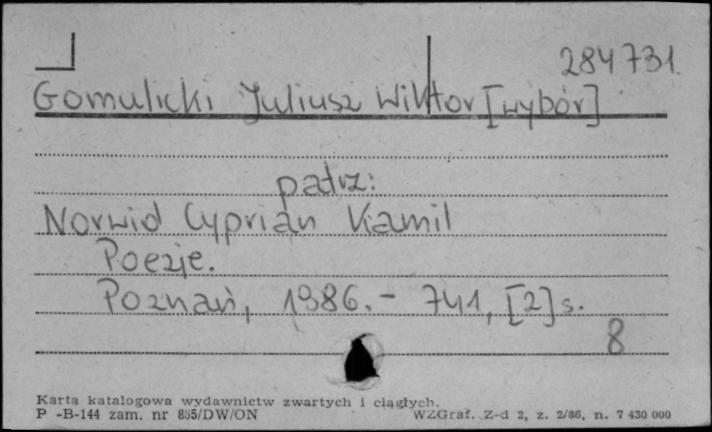 284731
Gomulicki Juliusz Wiktor [wybór]
patrz:
Norwid Cyprian Kamil
Poezje.
Poznań, 1986. – 741, [2] s.
8
Karta katalogowa wydawnictw zwartych i ciągłych.
P -B-144 zam. nr 855/DW/ON WZGraf. Z-d 2, z. 2/86, n. 7 430 000